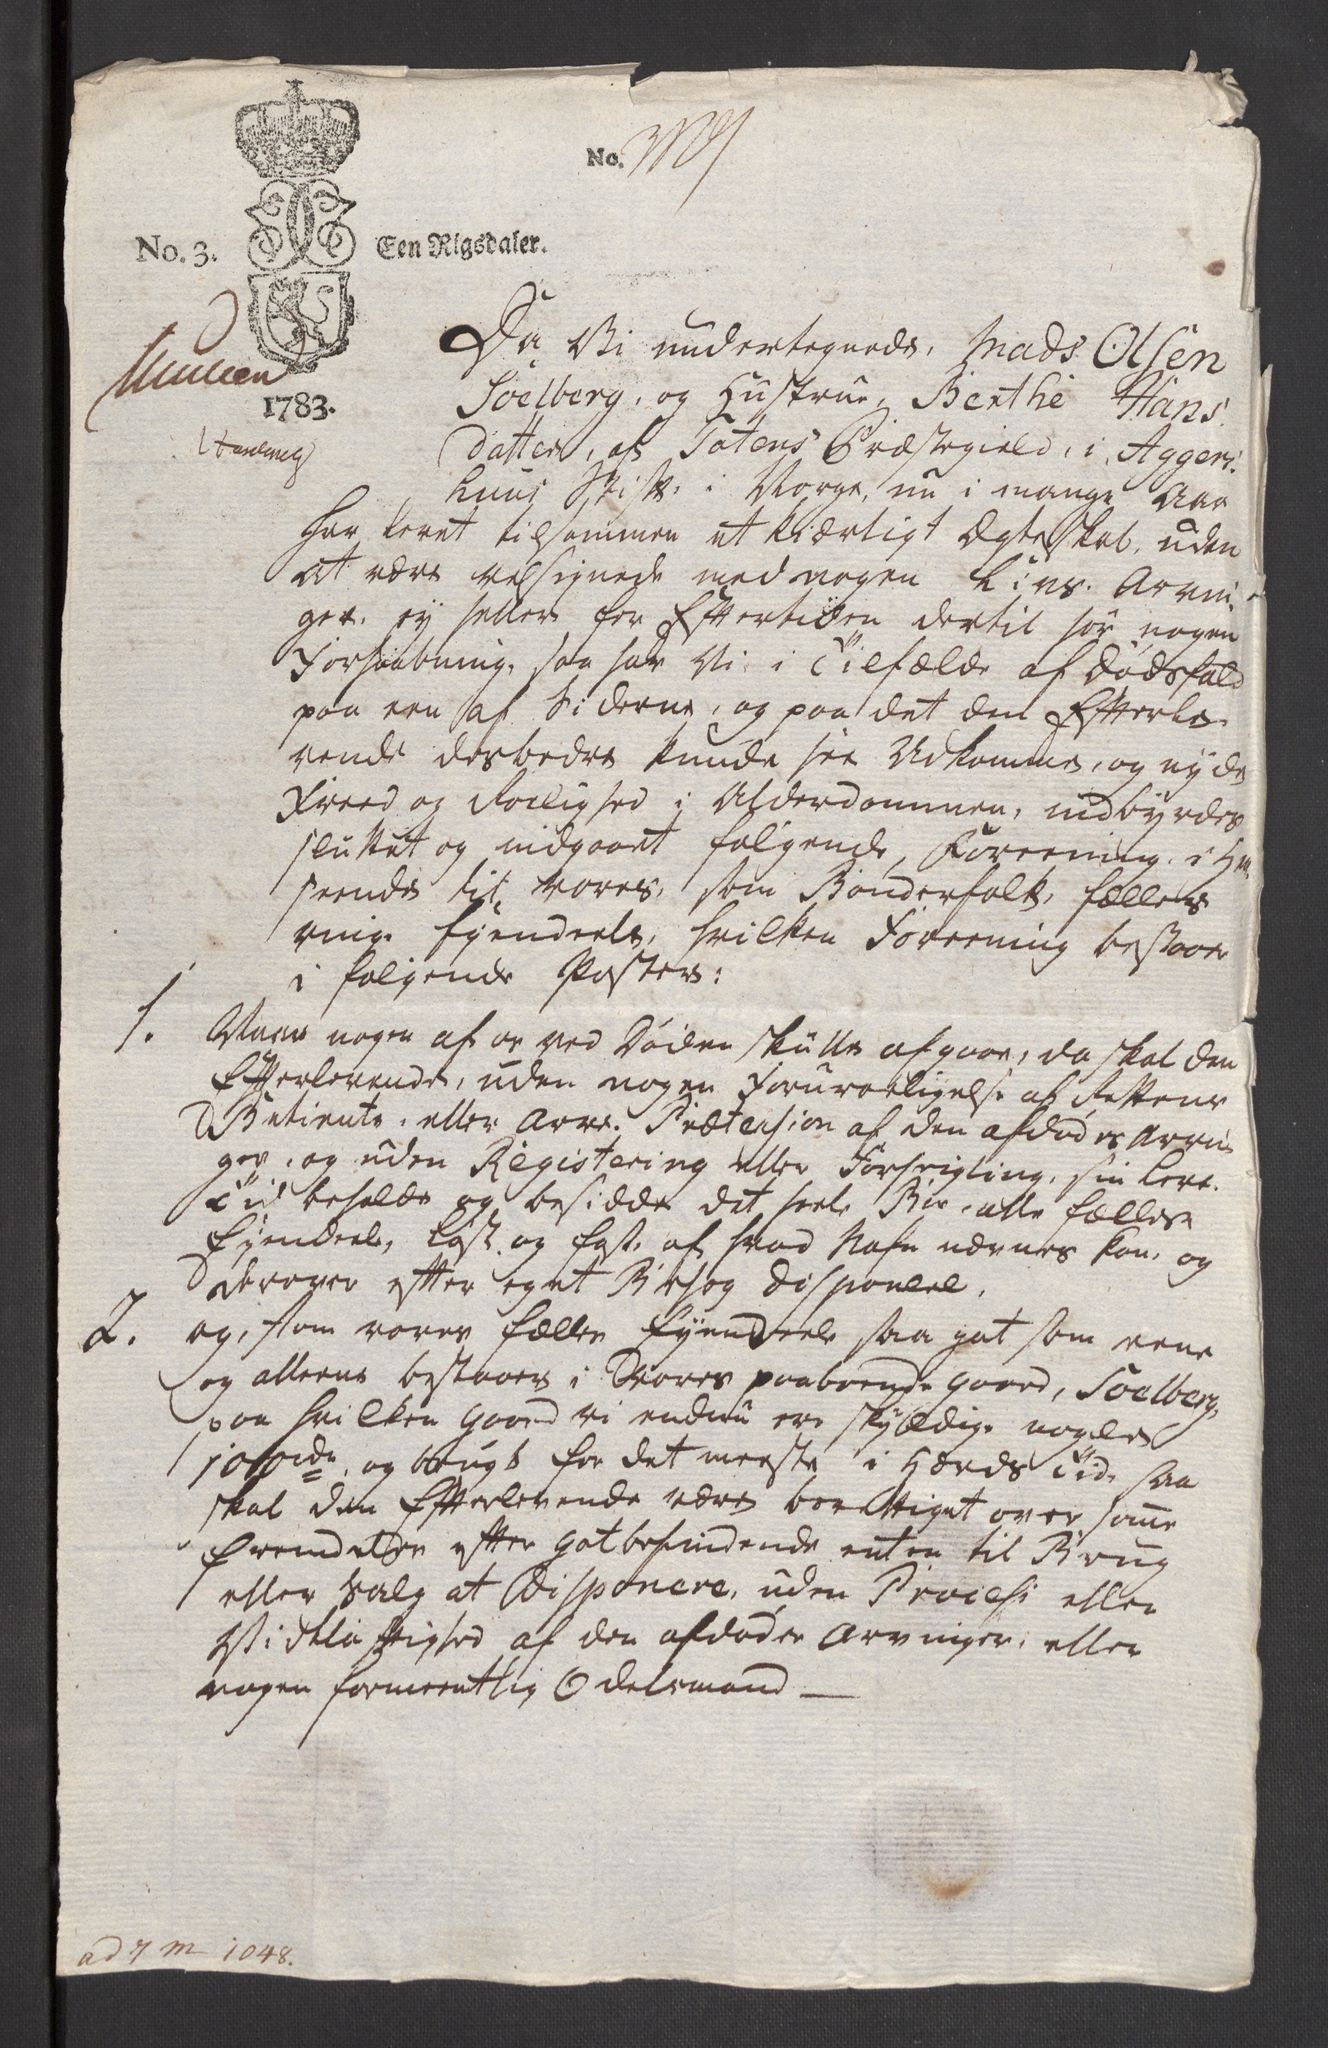 No.
No. 3. Een Rigsdaler.
1783.
Da Vi undertegnede, Mads Olsen
Soelberg, og Hustrue, Berthe Hans
datter, af Totens Præstegield, i Aggers
huus Stift, i Norge, nu i mange Aar
har levet tilsammen et kiærligt Ægteskab, uden
at være velsignede med nogen Livs Arvin
ger, ey heller for Eftertiden dertil har nogen
Forhaabning, saa har Vi i Tilfælde af Dødsfald
paa een af Siderne, og paa det den Efterle-
vende desbedre kunde see Udkomme, og nyde
Freed og Roelighed i Alderdommen, indbyrdes
sluttet og indgaaet følgende Foreening, i Hen
seende til vores, som Bønderfolk, fælles
ringe Eyendeele, hvilken Foreening bestaaer
i følgende Poster:
1. Naar nogen af os ved Døden skulle afgaae, da skal den
Efterlevende, uden nogen Foruroeligelse af Rettens
Betiente, eller Arve-Prætension af den afdødes Arvin
ger, og uden Registering eller Forseigling, sin Leve-
Tid beholde og besidde det heele Boe, alle fælles
Eyendeele, løst og fast, af hvad Nafn nævnes kan, og
derover efter eget Behag disponere.
2. og, som vores fælles Eyendeele saa got som eene
og alleene bestaaer i Vores paaboende Gaard, Soelberg,
paa hvilken Gaard vi endnu ere skyldige nogle
100 rd, og brugt for det meeste i Hærds Tid, saa
skal den Efterlevende være berettiget over samme
fremdeles efter Gotbefindende enten til Brug
eller Salg at disponere, uden Process eller
Vidtløftighed af den afdødes Arvinger, eller
nogen formeentlig Odelsmand —
ad 7 m 1048.